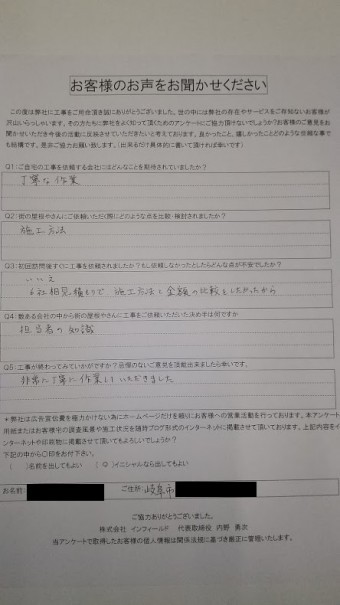 お客様のお声をお聞かせください
この度は弊社に工事をご用命頂き誠にありがとうございました。世の中には弊社の存在やサービスをご存知ないお客様が
沢山いらっしゃいます。その方たちに弊社をよく知って頂くためのアンケートにご協力頂けないでしょうか？お客様のご意見をお
聞かせいただき今後の活動に反映させていただきたいと考えております。良かったこと、嬉しかったことどのような些細な事で
も結構です。是非ご協力お願い致します。（出来るだけ具体的に書いて頂ければ幸いです）
Q1:ご自宅の工事を依頼する会社にはどんなことを期待されていましたか？
丁寧な作業
Q2:街の屋根やさんにご依頼いただく際にどのような点を比較・検討されましたか？
施工方法
Q3:初回訪問後すぐに工事を依頼されましたか？もし依頼しなかったとしたらどんな点が不安でしたか？
いいえ
6社相見積もりで 施工方法と金額の比較をしたかったから
Q4:数ある会社の中から街の屋根やさんに工事をご依頼いただいた決め手は何ですか
担当者の知識
Q5:工事が終わってみていかがですか？忌憚のないご意見を頂戴出来ましたら幸いです。
非常に丁寧に作業していただきました
＊弊社は広告宣伝費を極力かけない為にホームページだけを頼りにお客様への営業活動を行っております。本アンケート
用紙またはお客様宅の調査風景や施工状況を随時ブログ形式のインターネットに掲載させて頂いております。上記内容をイ
ンターネットや印刷物に掲載させて頂いてもよろしいでしょうか？
下記の中から○印をお付下さい。
（ ）名前を出してもよい （○）イニシャルなら出してもよい
お名前: ご住所: 岐阜市
ご協力ありがとうございました。
株式会社 インフィールド 代表取締役 内野 勇次
当アンケートで取得したお客様の個人情報は関係法規に基づき厳正に管理いたします。